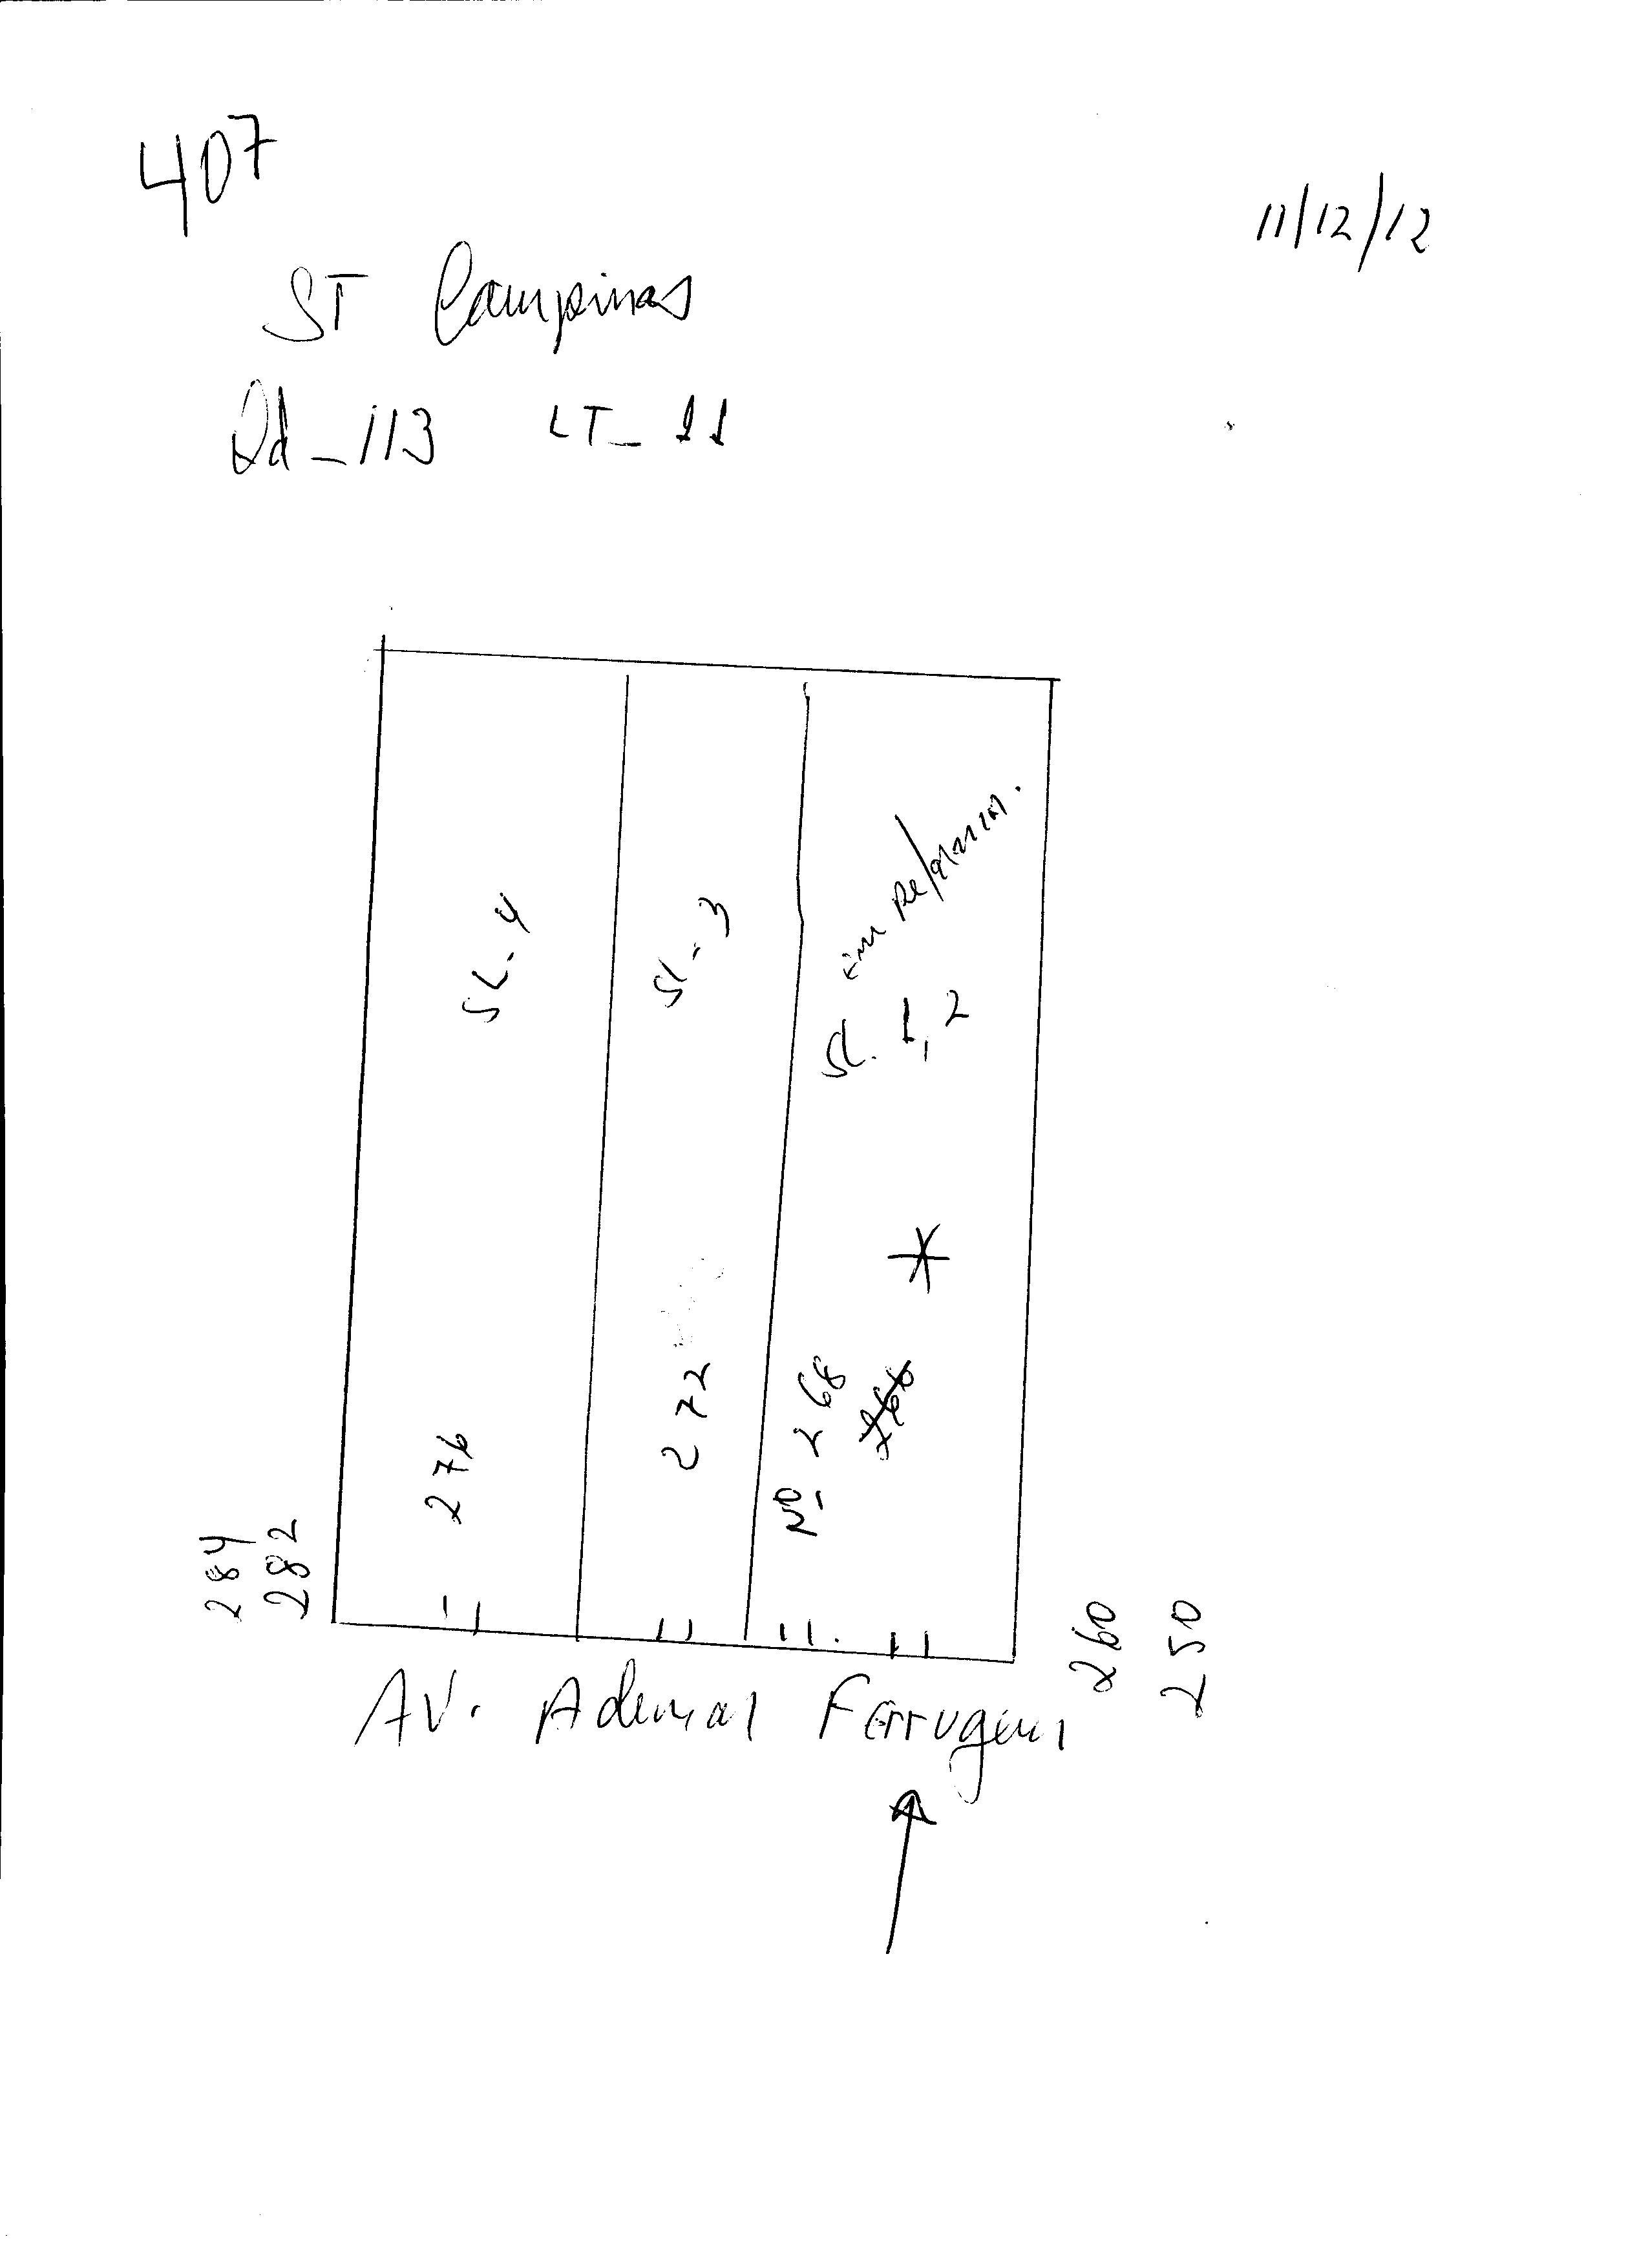 407
11/12/12
ST Campinas
Qd_113 LT_11
SL-4
SL-3
em reforma.
SL. 1,2
276
272
Nº- 268
284
282
260
250
AV. Ademar Ferrugem